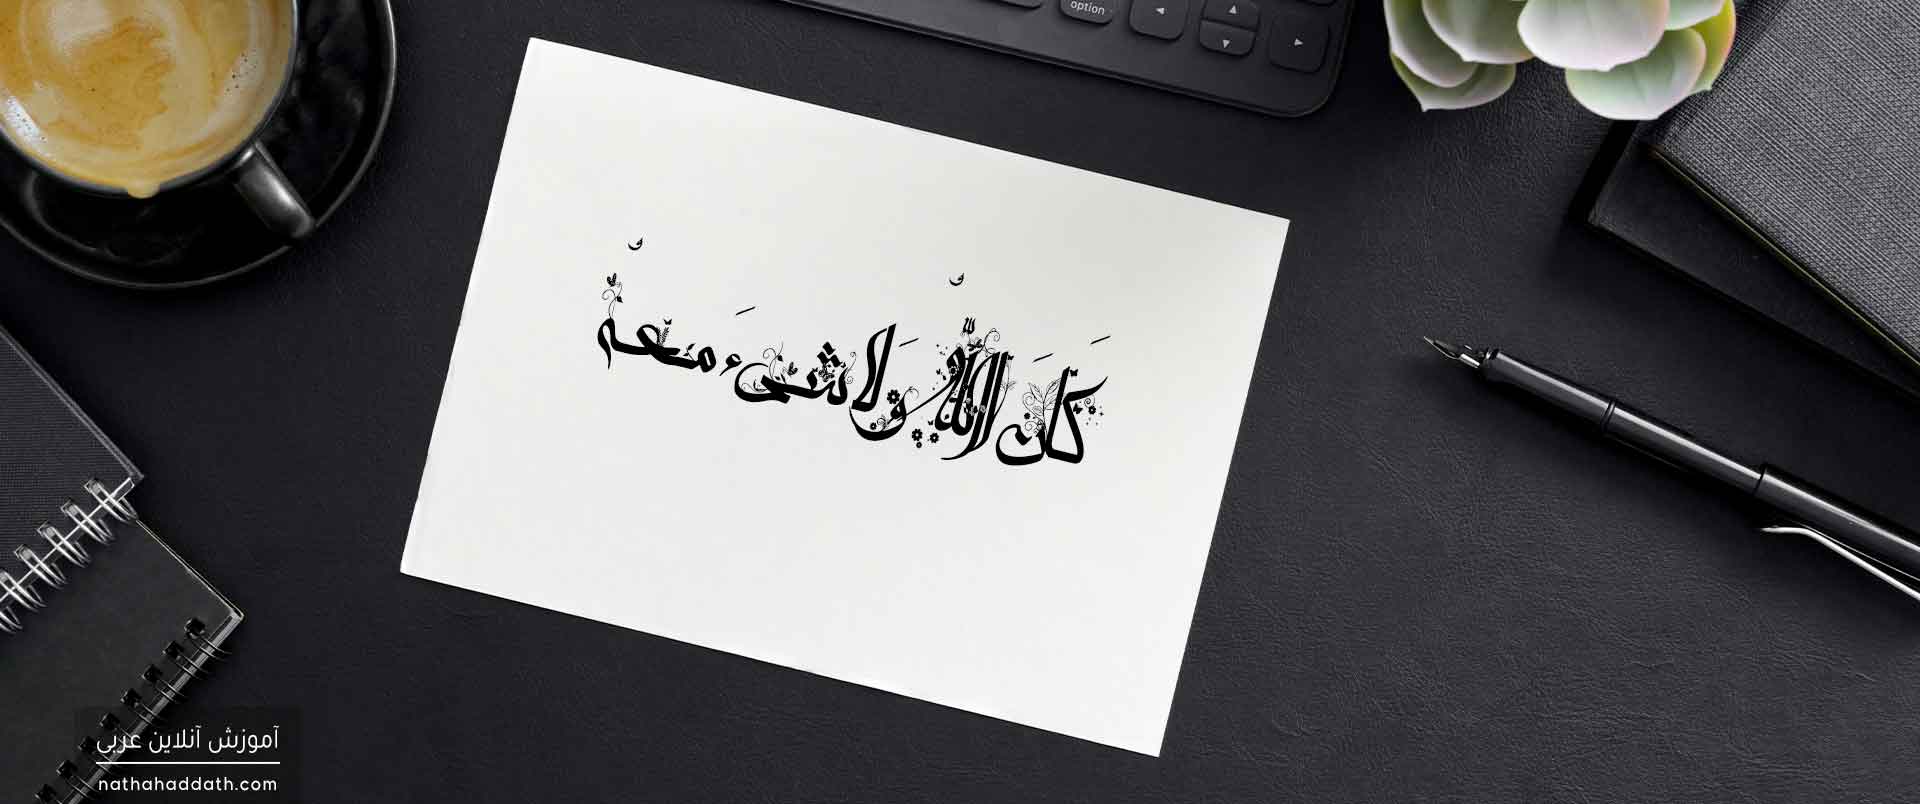 option
كَانَ اللّٰهُ وَلَا شَىءَ مَعَهُ
آموزش آنلاین عربی
nathahaddath.com